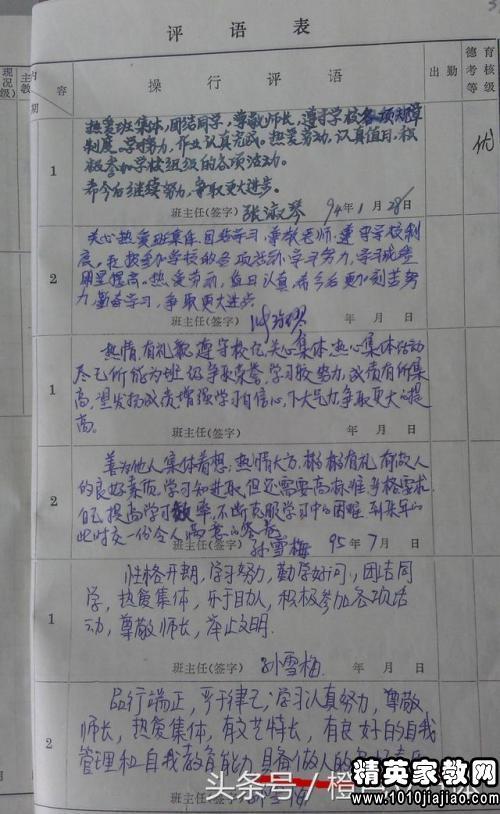 评语表
现况
内容
操行评语
出勤
德育考核等级
1
热爱班集体,团结同学,尊敬师长,遵守学校各项规章
制度。学习努力,作业认真完成。热爱劳动,认真值日,积
极参加学校组织的各项活动。
希今后继续努力,争取更大进步。
优
班主任(签字) 张淑琴 94年1月28日
2
关心热爱班集体,团结学习,尊敬老师,遵守学校制
度。积极参加学校的各项活动,学习努力,学习成绩
明显提高。热爱劳动,值日认真,希今后更加刻苦努
力,勤奋学习,争取更大进步
班主任(签字) 年 月 日
1
热情,有礼貌,遵守校纪,关心集体,热心集体活动
尽己所能为班级争取荣誉,学习较努力,成绩有所提
高,望发扬成绩,增强学习自信心,下大气力,争取更大的提
高。
班主任(签字) 年 月 日
2
善为他人集体着想,热情大方,彬彬有礼,有做人
的良好素质,学习知进取,但还需要高标准严格要求
自己,提高学习效率,不断克服学习中的困难,到来年的
此时交一份令人满意的答卷
班主任(签字) 孙雪梅 95年7月 日
1
性格开朗,学习努力,勤学好问,团结同
学,热爱集体,乐于助人,积极参加各项活
动,尊敬师长,举止文明.
班主任(签字) 孙雪梅 年 月 日
2
品行端正,严于律己,学习认真努力,尊敬
师长,热爱集体,有文艺特长,有良好的自我
管理和自我教育能力,具备做人的
班主任(签字)
头条号/橙
精英家教网
www.1010jiajiao.com